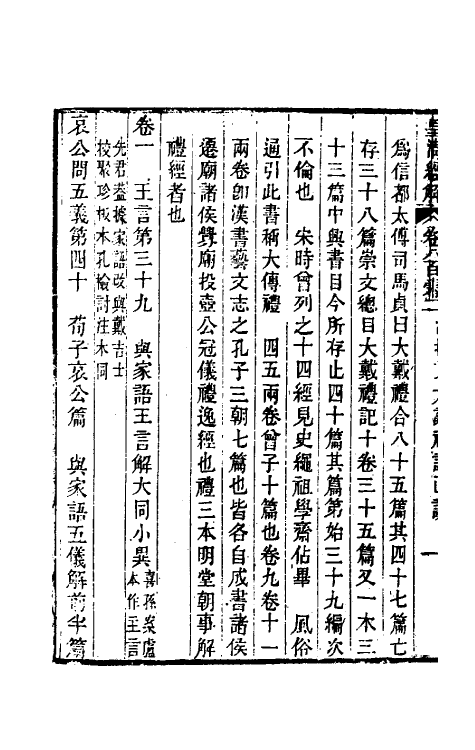 皇清經解 卷八百
爲信都太傅司馬貞曰大戴禮合八十五篇其四十七篇亡
存三十八篇崇文總目大戴禮記十卷三十五篇又一本三
十三篇中興書目今所存止四十篇其篇第始三十九編次
不倫也　宋時曾列之十四經見史繩祖學齋佔畢　風俗
通引此書稱大傳禮　四五兩卷曾子十篇也卷九卷十一
兩卷卽漢書藝文志之孔子三朝七篇也皆各自成書諸侯
遷廟諸侯釁廟投壺公冠儀禮逸經也禮三本明堂朝事解
禮經者也
卷一　王言第三十九　與家語王言解大同小異
喜孫案盧
本作主言
先君蓋據家語改與戴吉士
校聚珍板本孔檢討注本同
哀公問五義第四十　荀子哀公篇　與家語五儀解前半篇